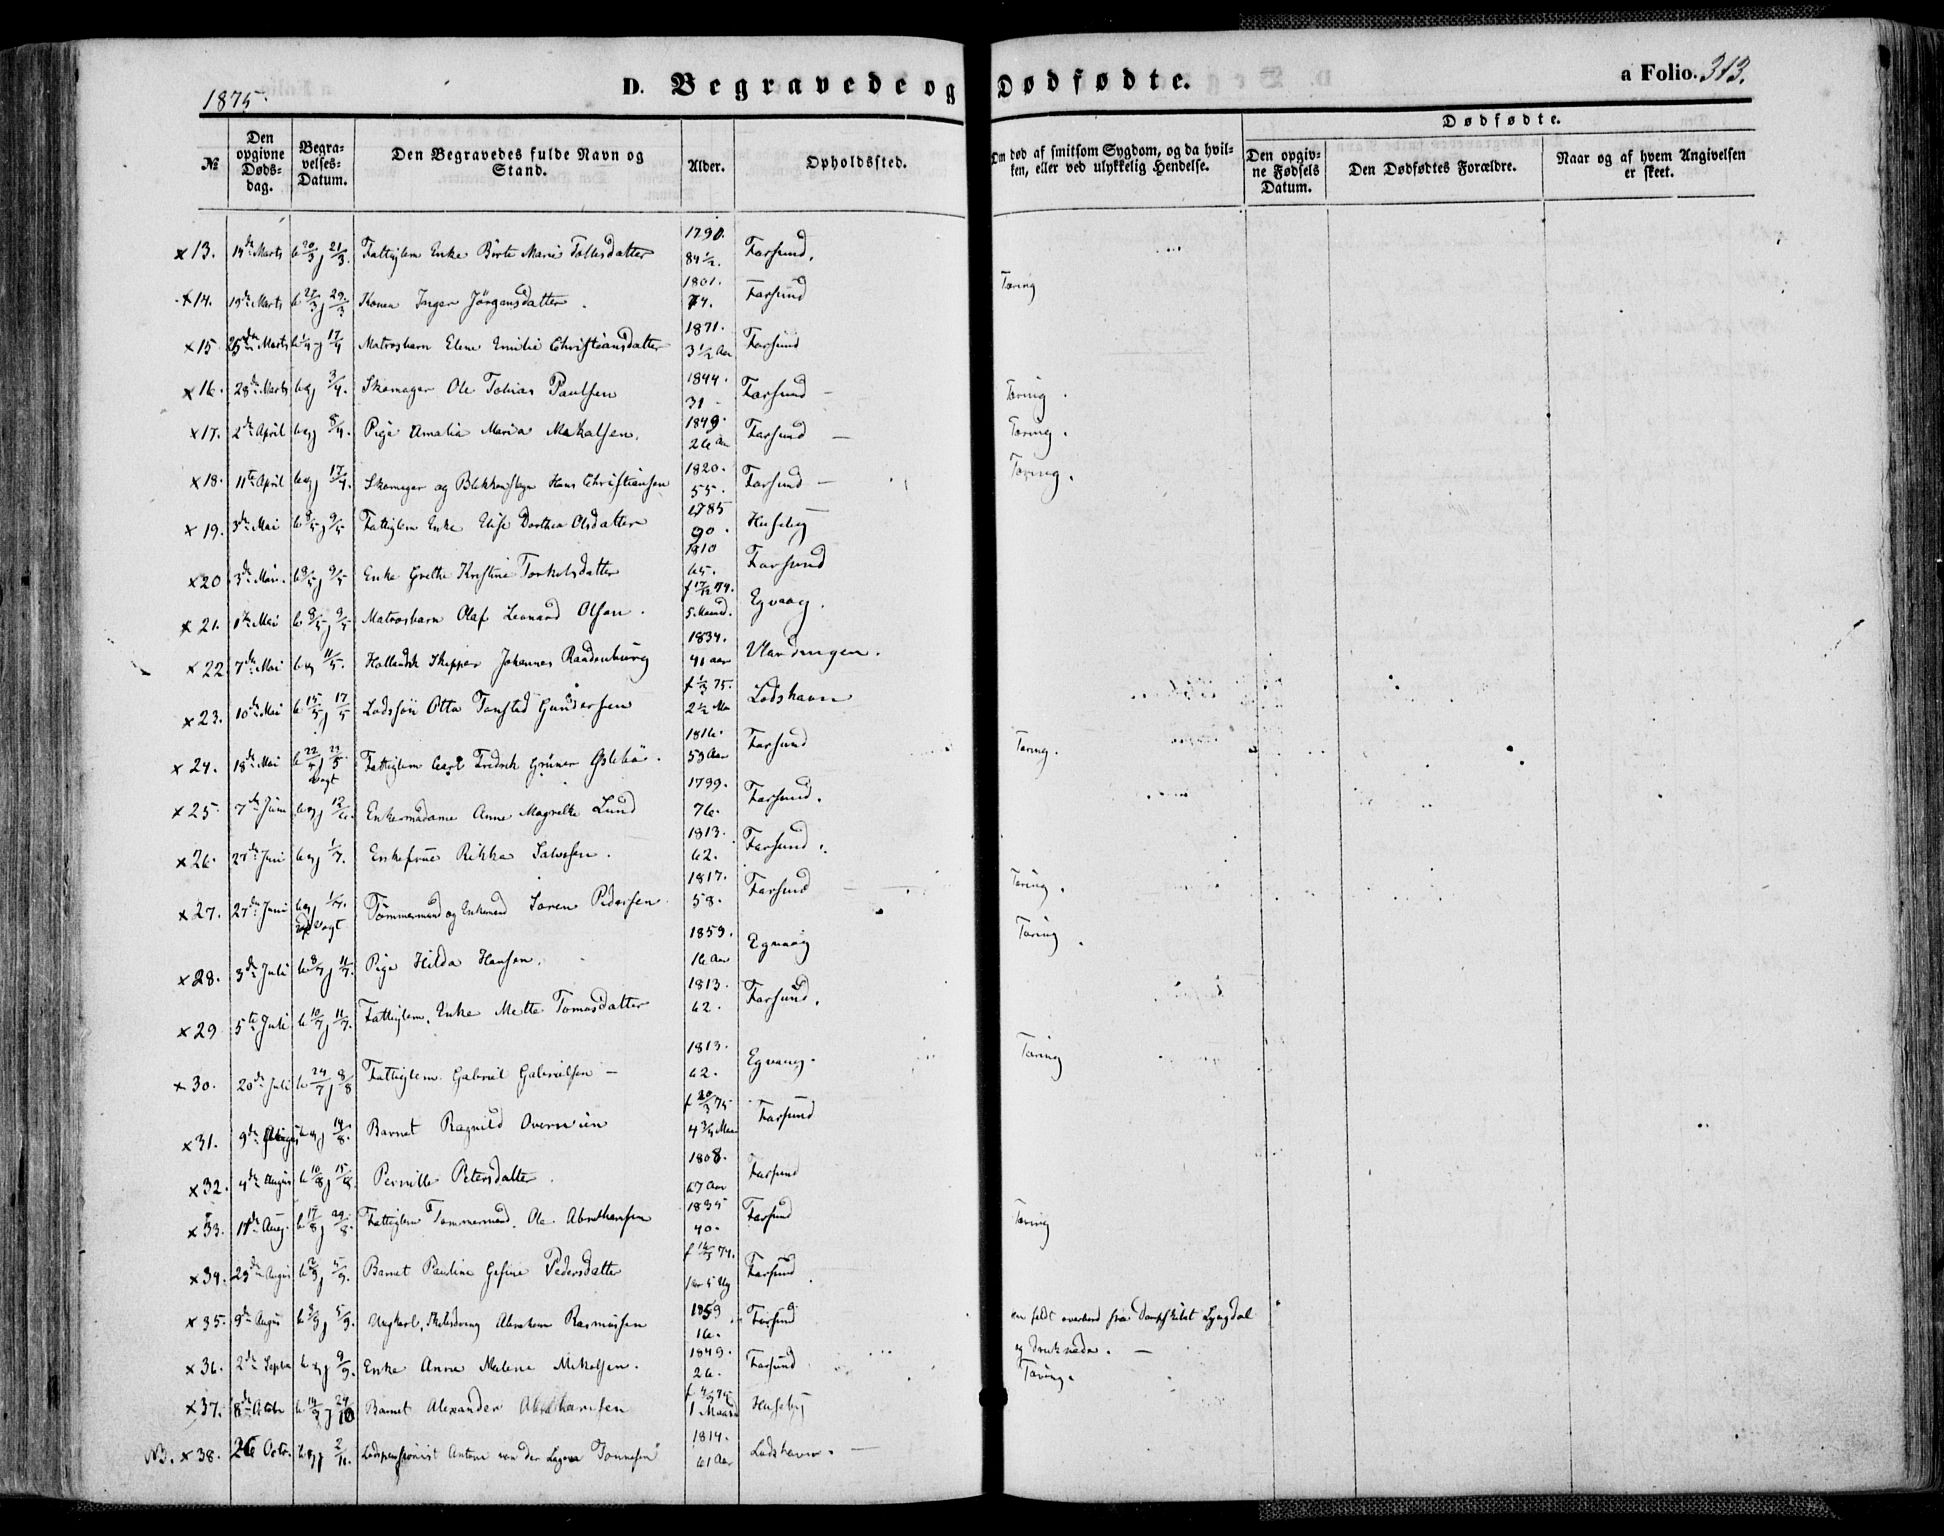 1875.
D. Begravede og Dødfødte.
a Folio. 313.
№
Den opgivne Døds-dag.
Begra-velses-Datum.
Den Begravedes fulde Navn og Stand.
Alder.
Opholdssted.
Om død af smitsom Sygdom, og da hvil-ken, eller ved ulykkelig Hendelse.
Dødfødte.
Den opgiv-ne Fødsels Datum.
Den Dødfødtes Forældre.
Naar og af hvem Angivelsen er skeet.
x 13. 14de Marts b 20/3 j 21/3. Fattiglem Enke Birte Marie Tollisdatter 1790. 84 1/2. Farsund.
x 14. 19de Marts b 27/3 j 29/3 Konen Inger Jörgensdatter. 1801. 74. Farsund Tæring
x 15 25de Marts b 1/4 j 17/4 Matrosbarn Elene Emilie Christiansdatter 1871. 3 1/2 Aar Farsund
x 16. 28de Marts b og j 3/4. Skomager Ole Tobias Paulsen 1844. 31 - Farsund - Tæring.
x 17. 2de April b og j 8/4. Pige Amalia Maria Mikalsen. 1849. 26 Aar Farsund - Tæring.
x 18. 11te April b og j 17/4. Skomager og Hans Christiansen 1820. 55. Farsund - Tæring.
x 19. 3de Mai b 8/5 j 9/5 Fattiglem Enke Elise Dorthea Olsdatter 1785 90. Huseby
x 20 3de Mai. b 8/5 j 9/5 Enke Grethe Kristine Torkelsdatter 1810 65. Farsund
x 21. 1ste Mai b 8/5 j 9/5 Matrosbarn Olaf Leonard Olsen. f 17/12 74. 5 Maand. Egvaag.
x 22 7de Mai b og j 11/5. Hollandsk Skipper Johannes Raadenburg 1834. 41 aar Vlardingen.
x 23. 10de Mai b 15/5 j 17/5 Lodssøn Otto Tonsted Gundersen f 1/3 75. 2 1/2 Ma Lodshavn
x 24. 18de Mai b 22/5 j 22/5 Vogt Fattiglem Carl Fredrik Grüner Östebö. 1816. 59 Aar Farsund Tæring.
x 25. 7de Juni b og j 12/6. Enkemadame Anne Magrethe Lund 1799. 76. Farsund.
x 26. 27de Juni b og j 1/7. Enkefrue Rikka Salvesen. 1813. 62. Farsund.
x 27. 27de Juni b og j 1/7. Vogt Tømmermand og Enkemand Soren Pedersen 1817. 58. Farsund Tæring.
x 28. 3de Juli b 8/7 j 11/7. Pige Hilda Hansen. 1859. 16 Aar Egvaag Tæring.
x 29 5te Juli b 10/7 j 11/7. Fattiglem. Enke Mette Tomasdatter 1813. 62. Farsund.
x 30. 20de Juli b 24/7 j 8/8 Fattiglem Gabriel Gabrielsen - 1813. 62. Egvaag. Tæring
x 31. 9de August b og j 14/8. Barnet Ragnild Overwien f 20/3 75 4 3/4 Maa Farsund
x 32. 4de August b 10/8 j 15/8. Pernille Petersdatter. 1808. 67 Aar Farsund
x 33. 11te Aug. b 17/8 j 29/8. Fattiglem Tømmermand. Ole Abrahamsen 1835 40. Farsund Tæring
x 34. 29de August b 2/9 j 5/9. Barnet Pauline Gesine Pedersdatter Farsund.
x 35. 9de August b 3/9 j 5/9. Ungkarl, Abraham Rasmussen 1859 16. Farsund en faldt overbord fra Dampskibet Lyngdal og druknede. -
x 36. 2de Septbr b og j 9/9. Enke Anna Malena Mikalsen. 1849. 26. Farsund Tæring.
x 37. 8de Octobr b j 24/10 Barnet Alexander Abrahamsen 1 Maaned Huseby
NB. x 38. 26 Octr. b og j 2/11. Lodspensionist Antoni van der Lagova Tønnesen 1814. 61 Aar Lodshavn. -